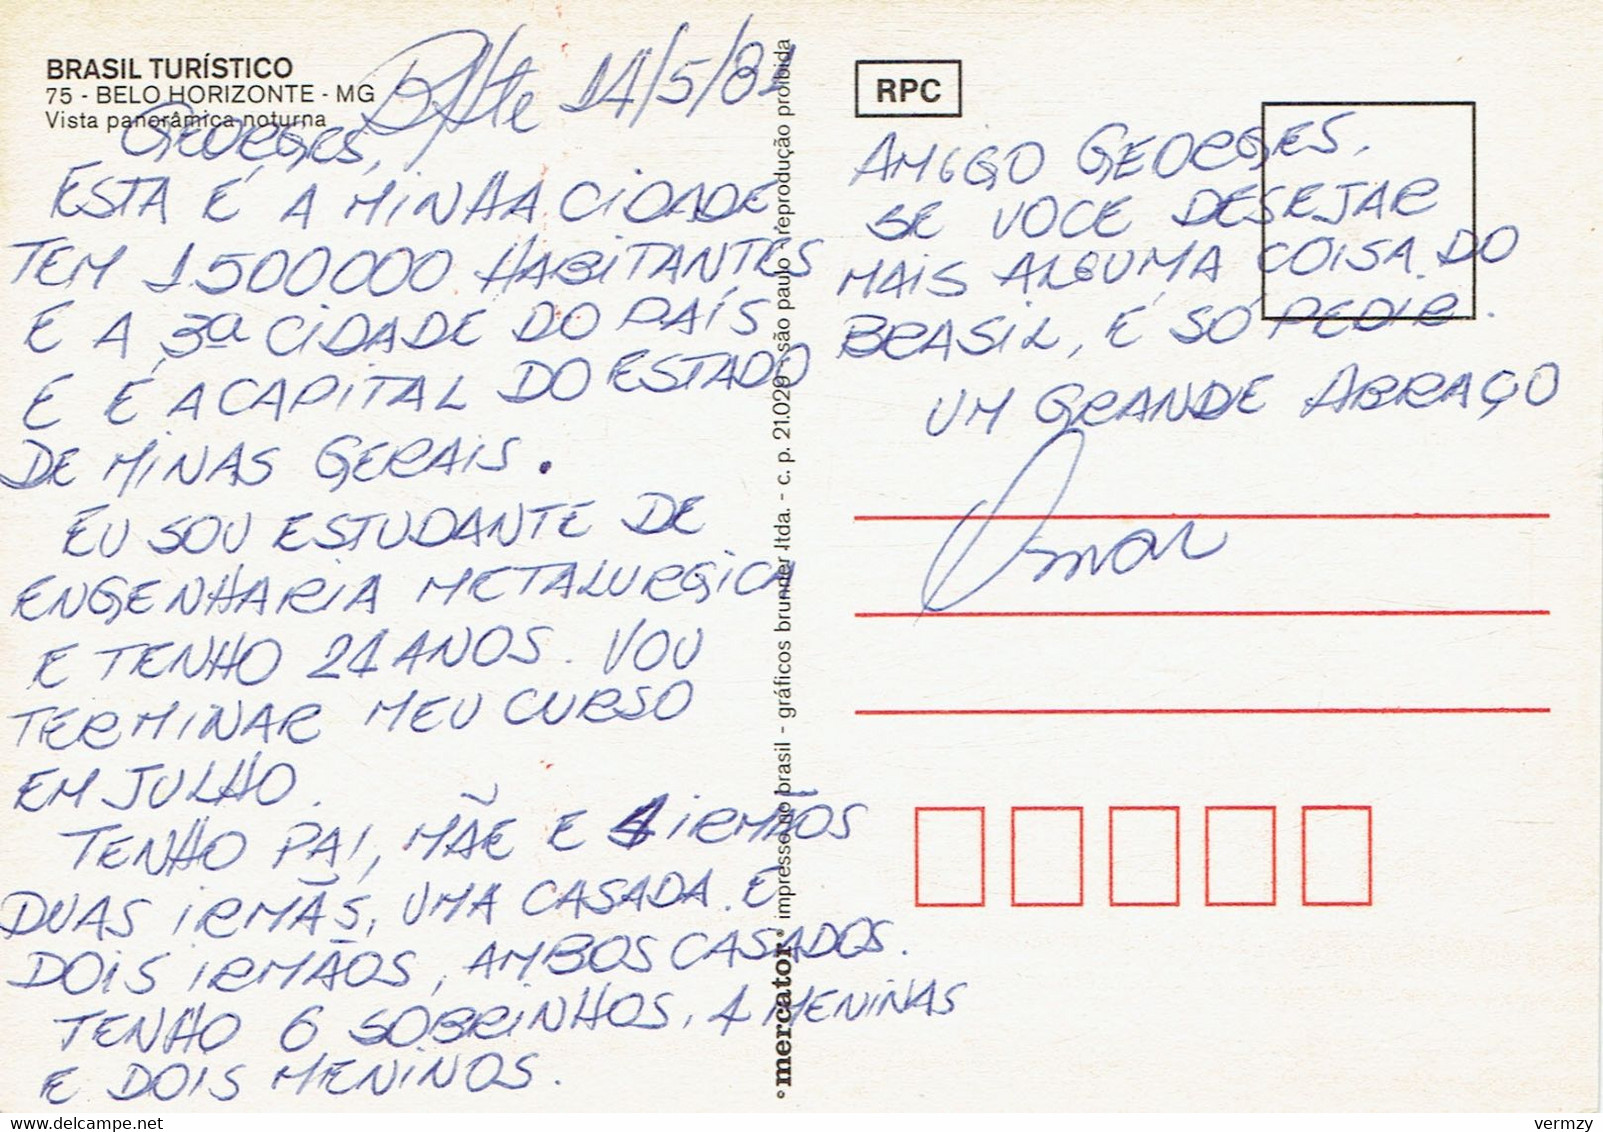 BRASIL TURÍSTICO
75 - BELO HORIZONTE - MG
Vista panorâmica noturna
BHte 14/5/81
GEORGES,
ESTA É A MINHA CIDADE
TEM 1500000 HABITANTES
E A 3ª CIDADE DO PAÍS
E É A CAPITAL DO ESTADO
DE MINAS GERAIS.
EU SOU ESTUDANTE DE
ENGENHARIA METALURGICA
E TENHO 21 ANOS. VOU
TERMINAR MEU CURSO
EM JULHO.
TENHO PAI, MÃE E 4 IRMÃOS
DUAS IRMÃS, UMA CASADA. E
DOIS IRMÃOS, AMBOS CASADOS.
TENHO 6 SOBRINHOS, 4 MENINAS
E DOIS MENINOS.
mercator impresso no brasil - gráficos brunner ltda. - c. p. 21.029 - são paulo - reprodução proibida
RPC
AMIGO GEORGES,
SE VOCE DESEJAR
MAIS ALGUMA COISA DO
BRASIL, É SÓ PEDIR.
UM GRANDE ABRAÇO
Osmar
vermzy